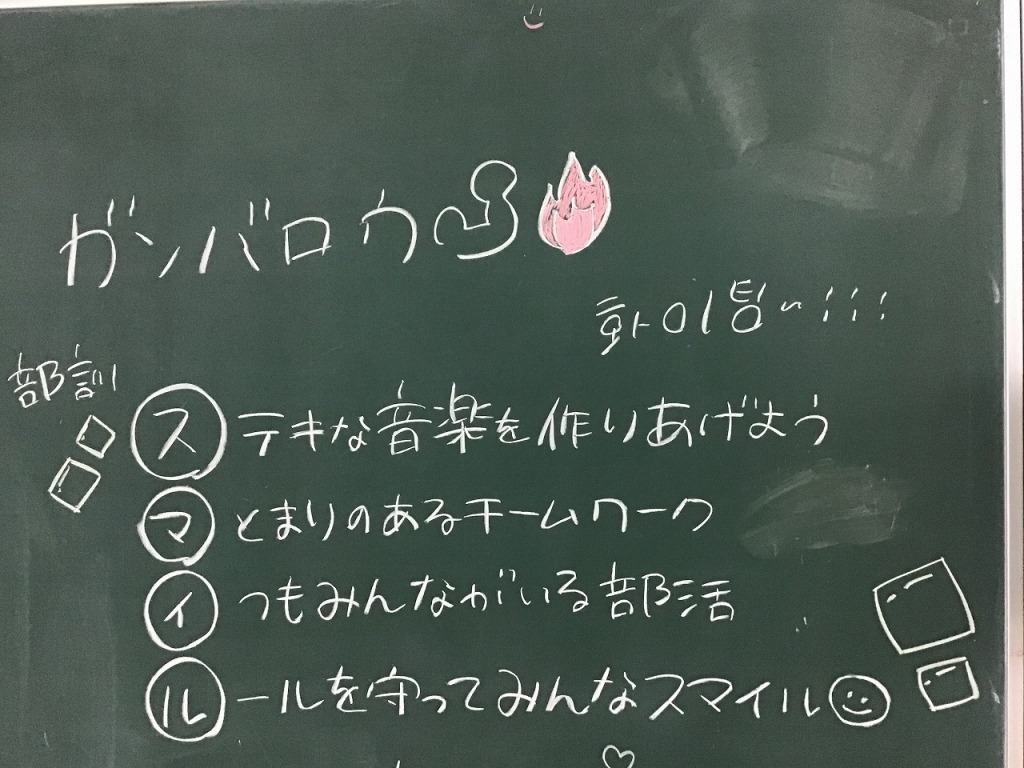 ガンバロウ
화이팅~!!!
部訓
ステキな音楽を作りあげよう
マとまりのあるチームワーク
イつもみんながいる部活
ルールを守ってみんなスマイル